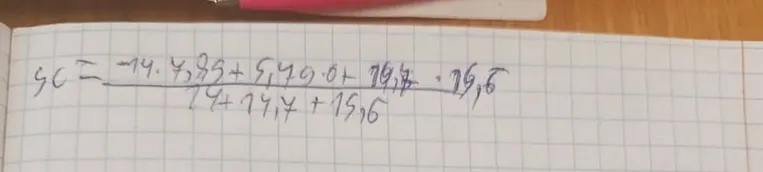 Sc = (-14 · 7,85 + 5,49 · 0 + 19,7 · 15,6) / (14 + 14,7 + 15,6)